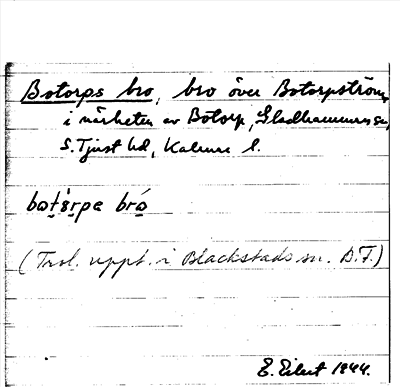 Botorps bro, bro över Botorpström,
i närheten av Botorp, Gladhammars sn,
S. Tjust hd, Kalmar l.
botorpe bro
(Trol. uppt. i Blackstads sn. D.F.)
E. Eilert 1944.